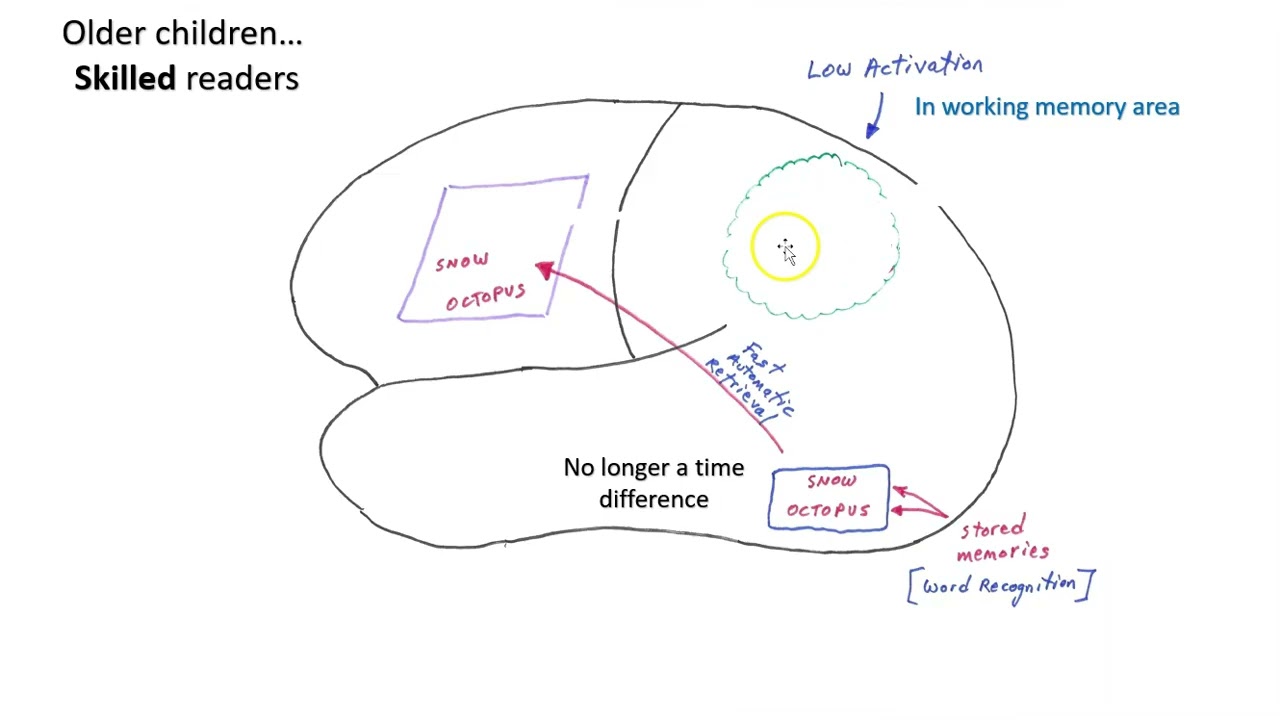 Older children...
Skilled readers
Low Activation
In working memory area
SNOW
OCTOPUS
Fast
Automatic
Retrieval
No longer a time
difference
SNOW
OCTOPUS
stored
memories
[Word Recognition]